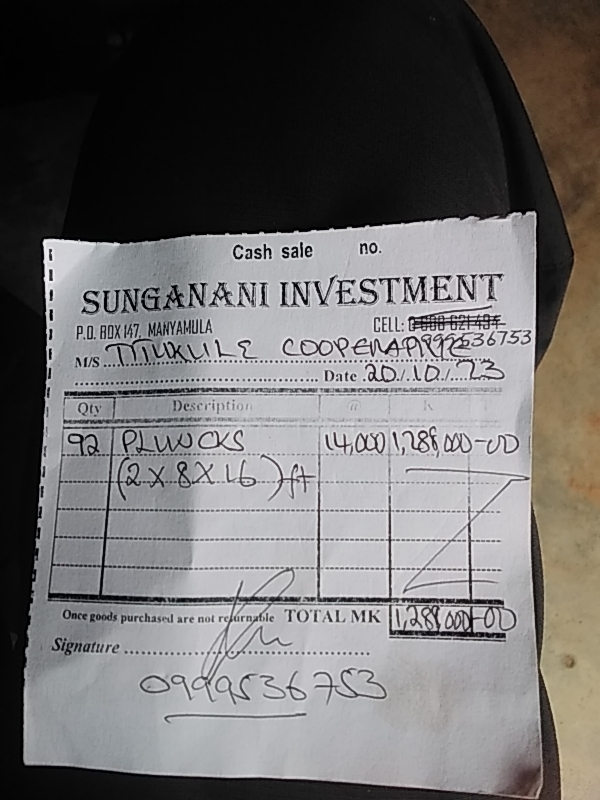 Cash sale no.
SUNGANANI INVESTMENT
P.O. BOX 147, MANYAMULA CELL:
0999536753
M/S TITUKULE COOPERATIVE
Date 20/10/23
Qty Description @ K
92 PLUNCKS 14,000 1,288,000-00
(2 X 8 X 16) ft
Once goods purchased are not returnable TOTAL MK 1,288,000-00
Signature
0999536753